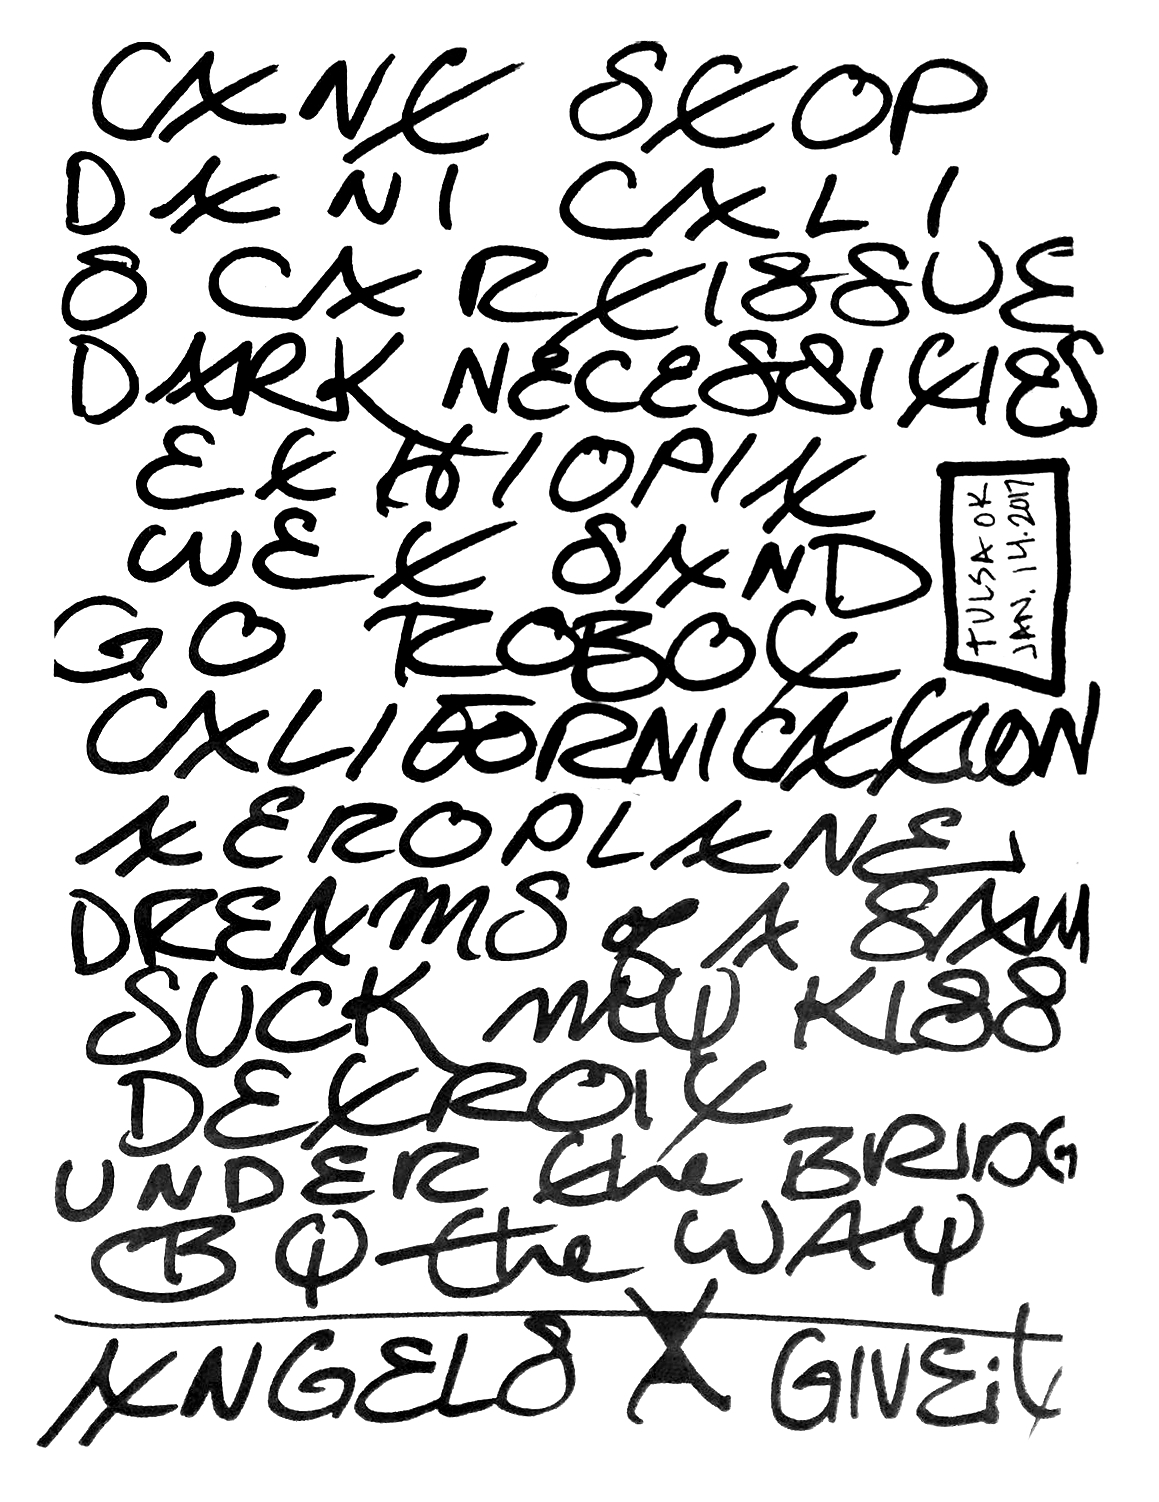 CAN'T STOP
DANI CALI
SCAR TISSUE
DARK NECESSITIES
ETHIOPIA
WET SAND
GO ROBOT
CALIFORNICATION
AEROPLANE
DREAMS of A SAM
SUCK MY KISS
DETROIT
UNDER the BRIDG
BY the WAY
ANGELS X GIVE it
TULSA OK
JAN. 14. 2017